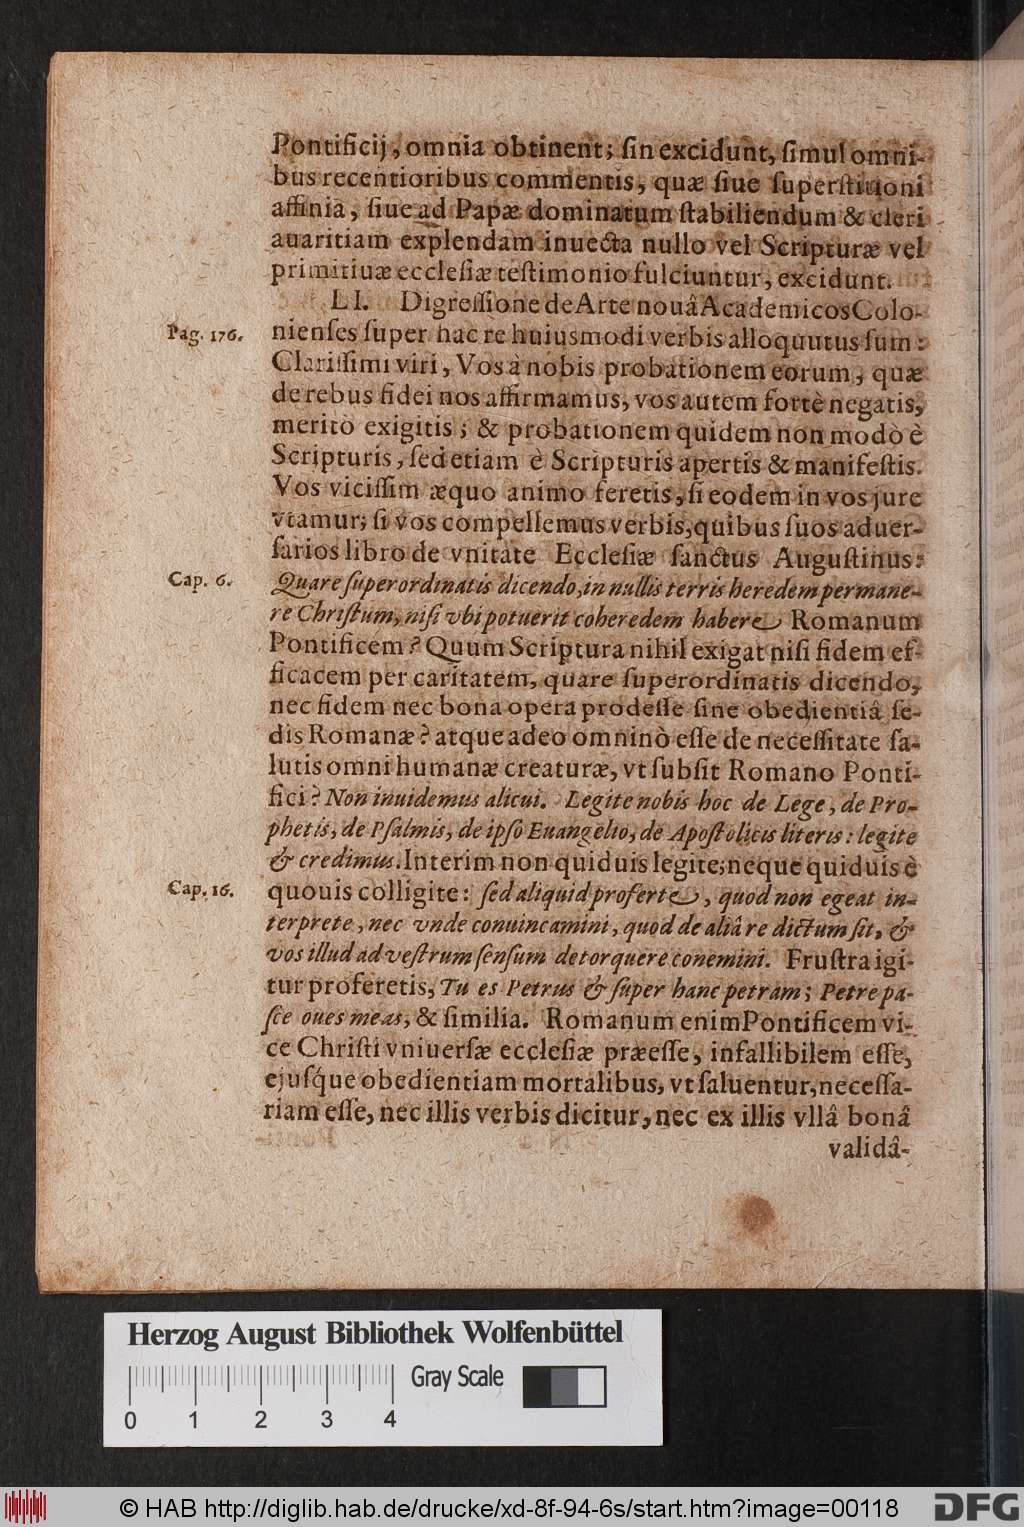 Pontificij, omnia obtinent; ſin excidunt, ſimul omni-
bus recentioribus commentis, quæ ſiue ſuperſtitioni
affinia, ſiue ad Papæ dominatum ſtabiliendum & cleri
auaritiam explendam inuecta nullo vel Scripturæ vel
primitiuæ eccleſiæ teſtimonio fulciuntur, excidunt.
LI. Digreſſione de Arte nouâ Academicos Colo-
Pag. 176. nienſes ſuper hac re huiusmodi verbis alloquutus ſum:
Clariſſimi viri, Vos à nobis probationem eorum, quæ
de rebus fidei nos affirmamus, vos autem fortè negatis,
meritò exigitis; & probationem quidem non modò è
Scripturis, ſed etiam è Scripturis apertis & manifeſtis.
Vos viciſſim æquo animo feretis, ſi eodem in vos jure
vtamur; ſi vos compellemus verbis, quibus ſuos aduer-
ſarios libro de vnitate Eccleſiæ ſanctus Auguſtinus:
Cap. 6. Quare ſuperordinatis dicendo, in nullis terris heredem permane-
re Chriſtum, niſi vbi potuerit coheredem habere Romanum
Pontificem? Quum Scriptura nihil exigat niſi fidem ef-
ficacem per caritatem, quare ſuperordinatis dicendo,
nec fidem nec bona opera prodeſſe ſine obedientiâ ſe-
dis Romanæ? atque adeo omninò eſſe de neceſſitate ſa-
lutis omni humanæ creaturæ, vt ſubſit Romano Ponti-
fici? Non inuidemus alicui. Legite nobis hoc de Lege, de Pro-
phetis, de Pſalmis, de ipſo Euangelio, de Apoſtolicis literis: legite
& credimus. Interim non quiduis legite; neque quiduis è
Cap. 16. quouis colligite: ſed aliquid proferte, quod non egeat in-
terprete, nec vnde conuincamini, quod de aliâ re dictum ſit, &
vos illud ad veſtrum ſenſum detorquere conemini. Fruſtra igi-
tur proferetis, Tu es Petrus & ſuper hanc petram; Petre pa-
ſce oues meas, & ſimilia. Romanum enim Pontificem vi-
ce Chriſti vniuerſæ eccleſiæ præeſſe, infallibilem eſſe,
ejuſq́ue obedientiam mortalibus, vt ſaluentur, neceſſa-
riam eſſe, nec illis verbis dicitur, nec ex illis vllâ bonâ
validâ-
Herzog August Bibliothek Wolfenbüttel
Gray Scale
0 1 2 3 4
© HAB http://diglib.hab.de/drucke/xd-8f-94-6s/start.htm?image=00118
DFG